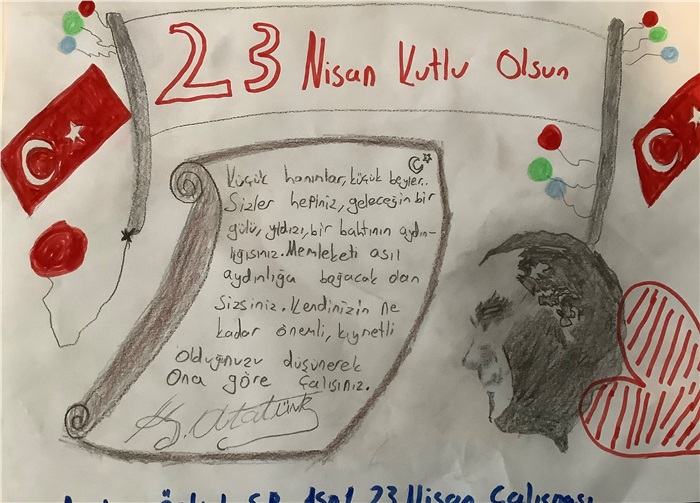 23 Nisan Kutlu Olsun
Küçük hanımlar, küçük beyler..
Sizler hepiniz, geleceğin bir
gülü, yıldızı, bir bahtının aydın-
lığısınız. Memleketi asıl
aydınlığa boğacak olan
Sizsiniz. Kendinizin ne
kadar önemli, kıymetli
Olduğunuzu düşünerek
Ona göre Çalışınız.
K. Atatürk
23 Nisan Çalışması